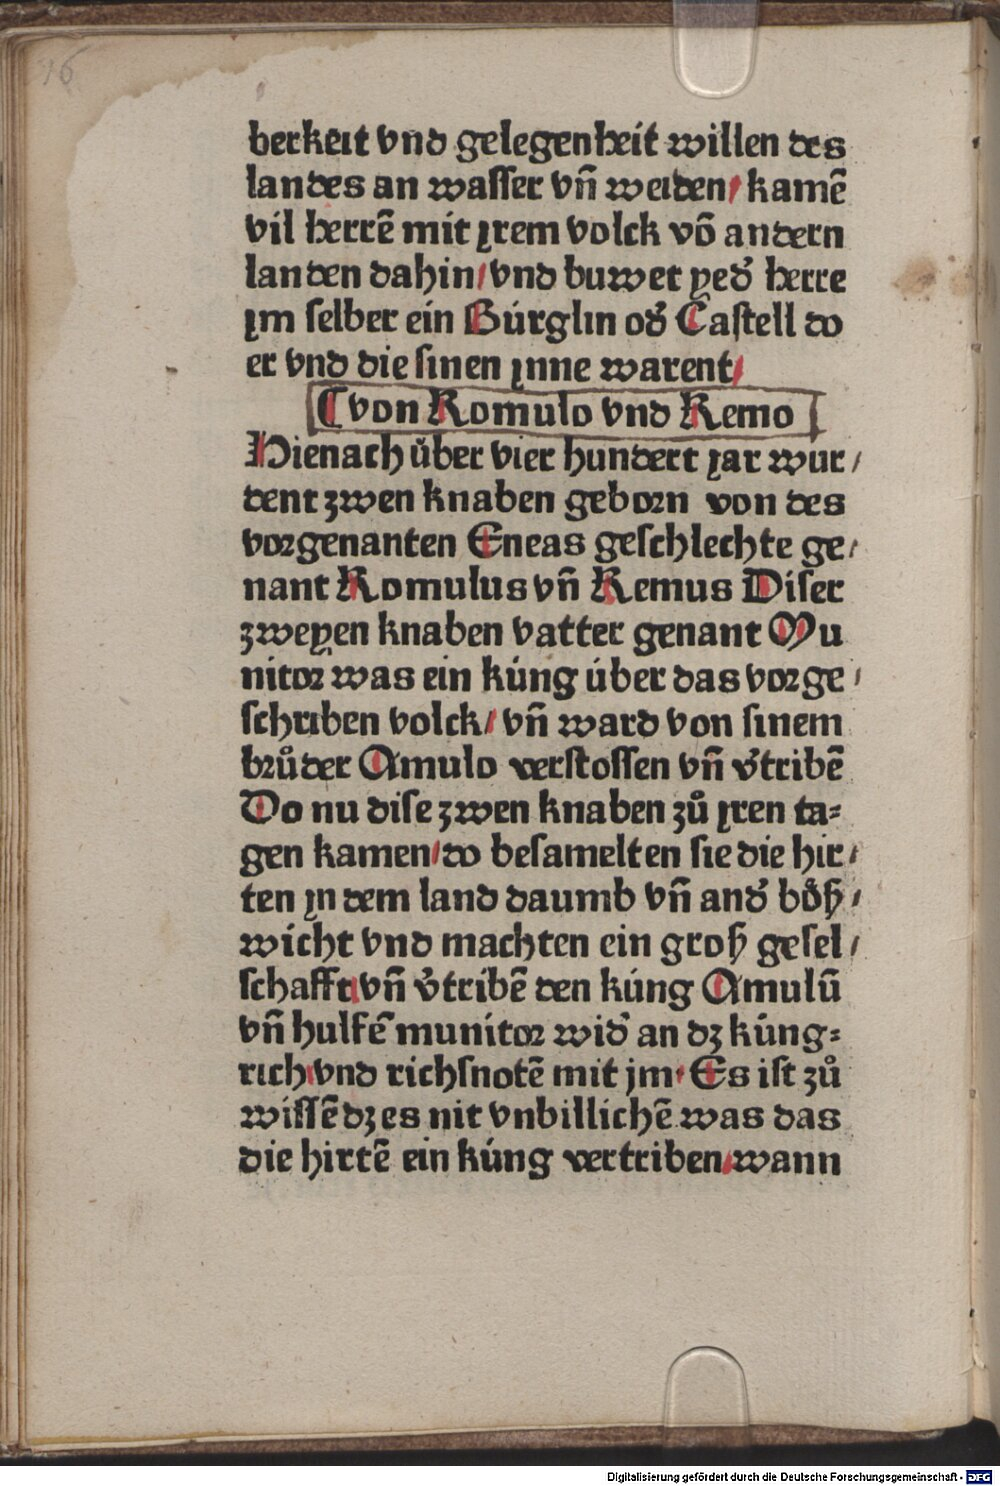 16
berkeit vnd gelegenheit willen des
landes an wasser vn̄ weiden/ kamē
vil herrē mit yrem volck vō andern
landen dahin/ vnd buwet yed' herre
ym selber ein Bürglin od' Castell do
er vnd die sinen ynne warent/
¶ von Romulo vnd Remo
Hienach über vier hundert yar wur/
dent zwen knaben geborn von des
vorgenanten Eneas geschlechte ge/
nant Romulus vn̄ Remus Diser
zweyen knaben vatter genant Mu
nitor was ein küng über das vorge/
schriben volck/ vn̄ ward von sinem
brůder Amulo verstossen vn̄ v'tribē
Do nu dise zwen knaben zů yren ta=
gen kamen/ do besamelten sie die hir/
ten yn dem land daumb vn̄ and' böß/
wicht vnd machten ein groß gesel/
schafft/ vn̄ v'tribē den küng Amulū
vn̄ hulfē munitor wid' an dz küng=
rich/ vnd richsnotē mit jm· Es ist zů
wissē dz es nit vnbillichē was das
die hirtē ein küng vertriben/ wann
Digitalisierung gefördert durch die Deutsche Forschungsgemeinschaft - DFG